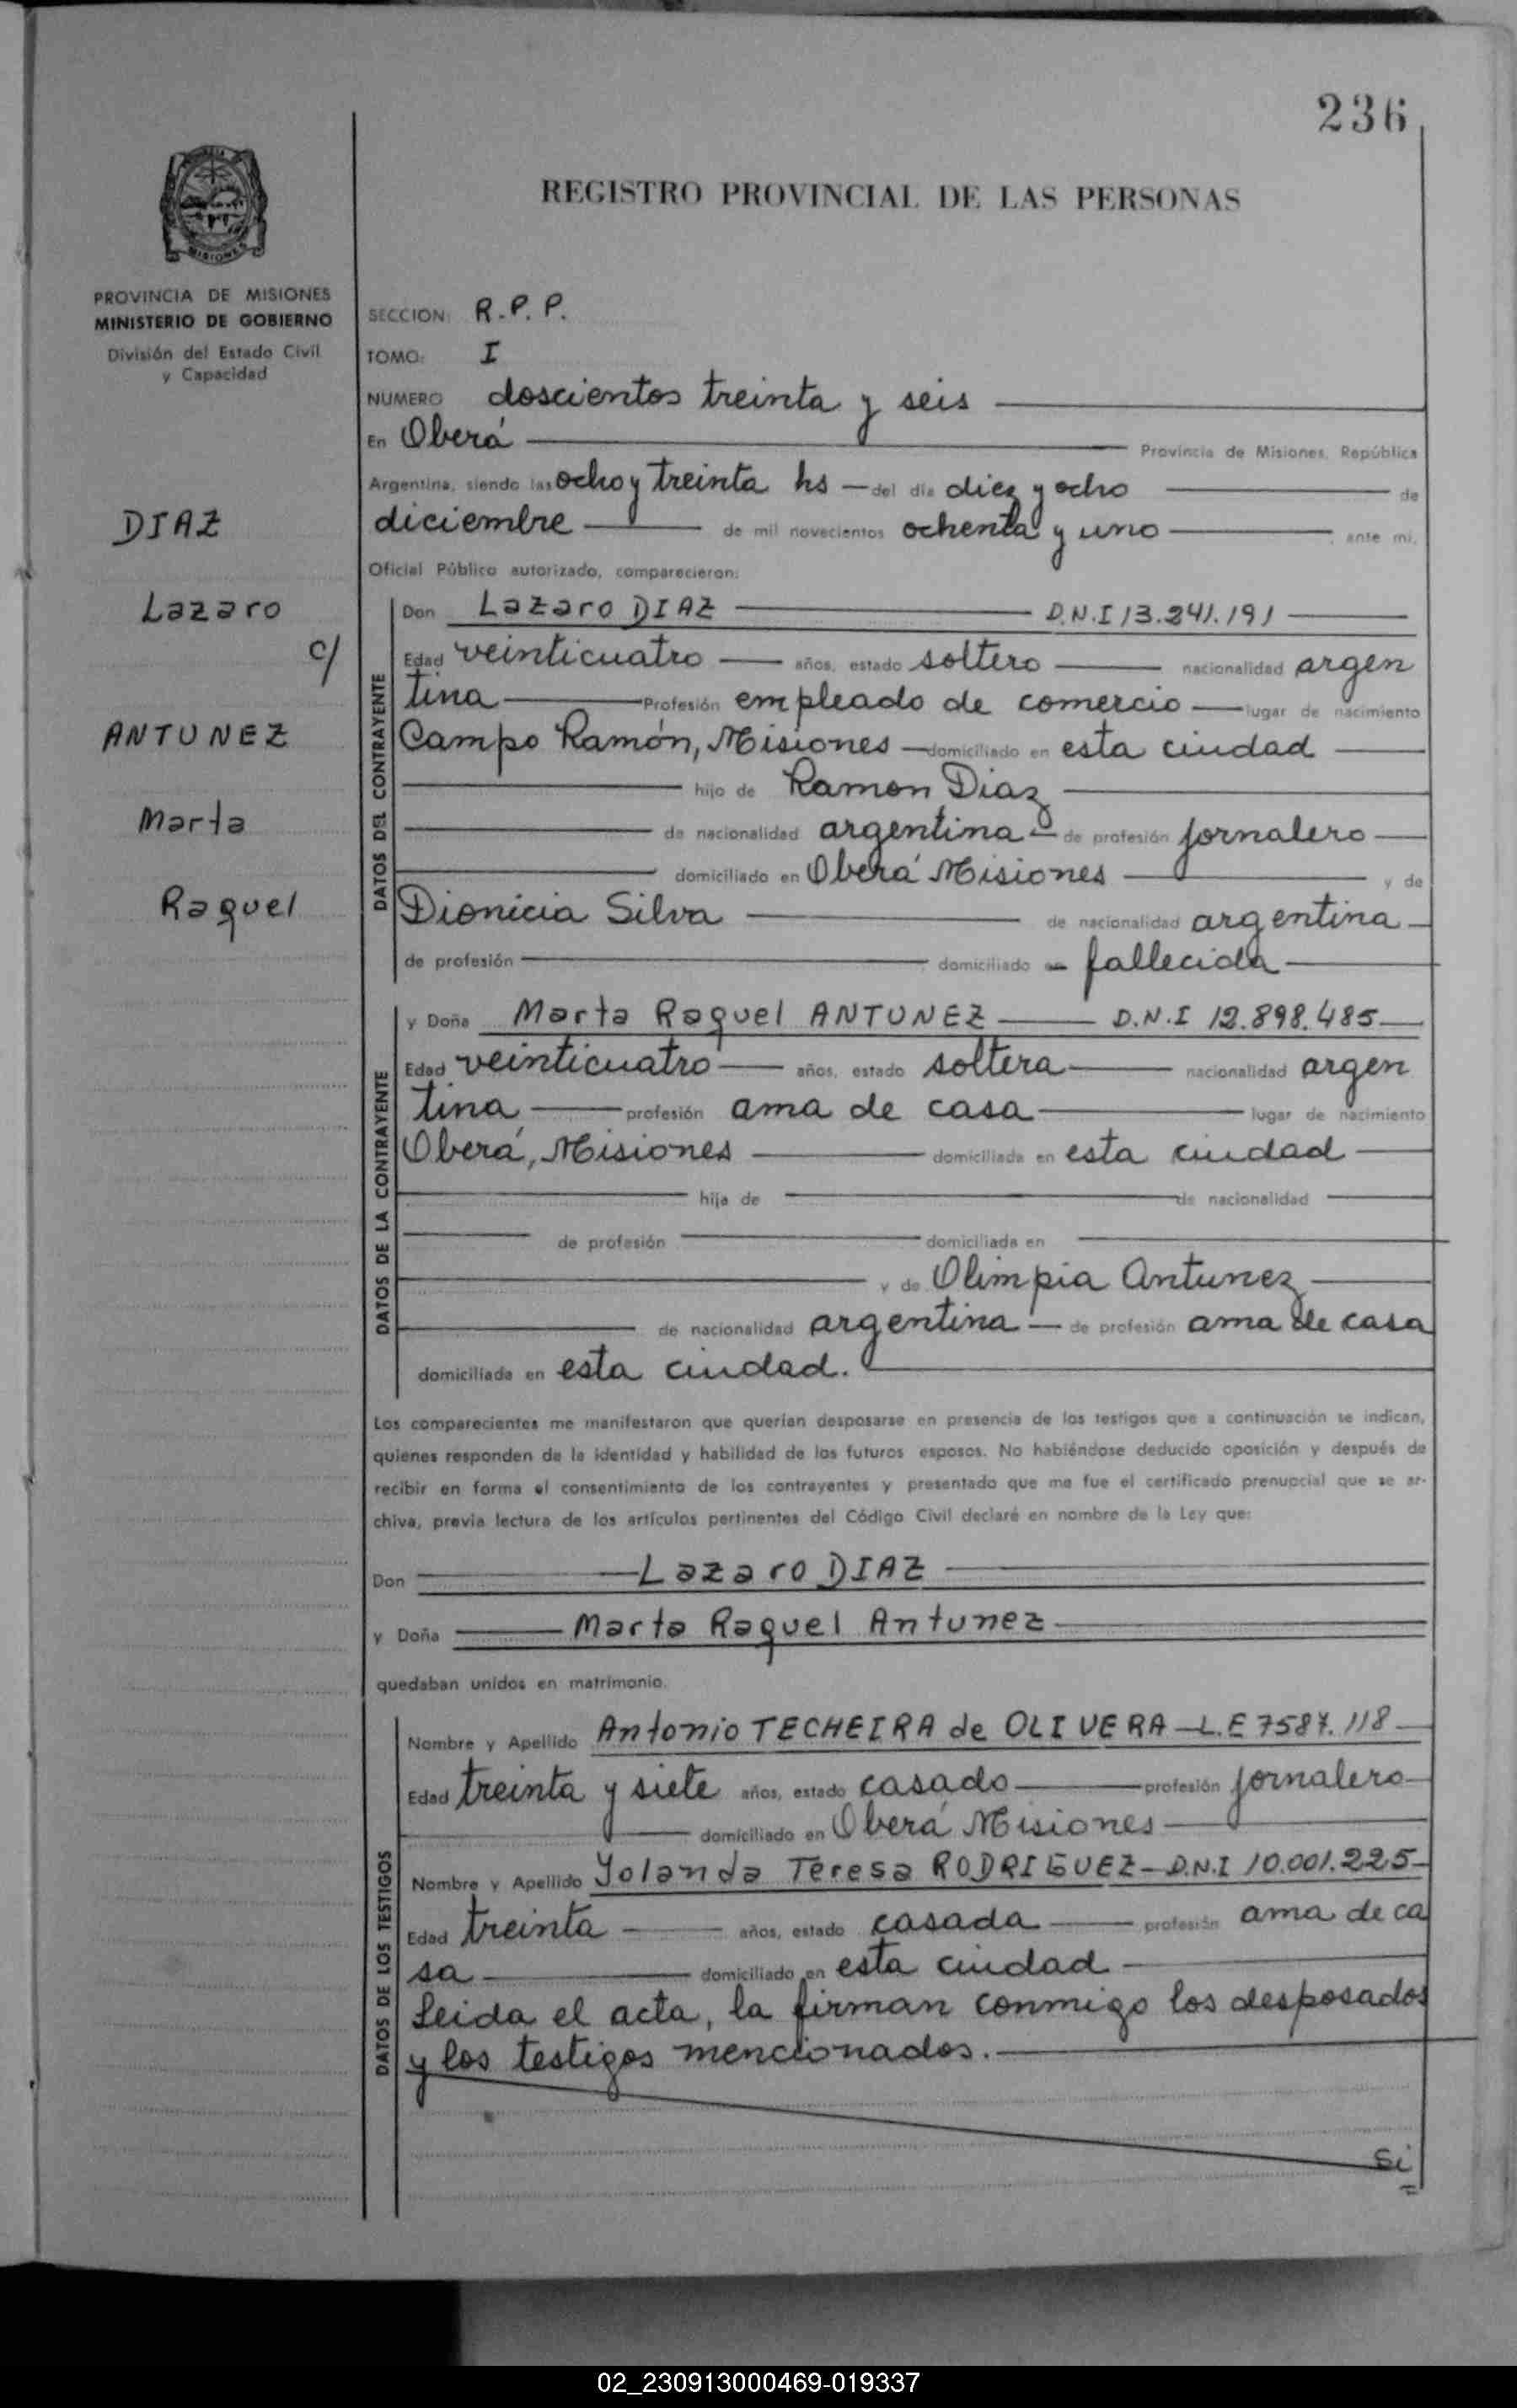 236
REGISTRO PROVINCIAL DE LAS PERSONAS
MISIONES
PROVINCIA DE MISIONES
MINISTERIO DE GOBIERNO
División del Estado Civil
y Capacidad
DIAZ
Lazaro
c/
ANTUNEZ
Marta
Raquel
SECCION: R.P.P.
TOMO: I
NUMERO doscientos treinta y seis
En Oberá Provincia de Misiones, República
Argentina, siendo las ocho y treinta hs del día diez y ocho de
diciembre de mil novecientos ochenta y uno ante mi,
Oficial Público autorizado, comparecieron:
DATOS DEL CONTRAYENTE
Don Lazaro DIAZ D.N.I 13.241.191
Edad veinticuatro años, estado soltero nacionalidad argen
tina Profesión empleado de comercio lugar de nacimiento
Campo Ramón, Misiones domiciliado en esta ciudad
hijo de Ramon Diaz
de nacionalidad argentina de profesión jornalero
domiciliado en Oberá Misiones y de
Dionicia Silva de nacionalidad argentina
de profesión domiciliado en fallecida
DATOS DE LA CONTRAYENTE
y Doña Marta Raquel ANTUNEZ D.N.I 12.898.485
Edad veinticuatro años, estado soltera nacionalidad argen
tina profesión ama de casa lugar de nacimiento
Oberá, Misiones domiciliada en esta ciudad
hija de de nacionalidad
de profesión domiciliada en
y de Olimpia Antunez
de nacionalidad argentina de profesión ama de casa
domiciliada en esta ciudad.
Los comparecientes me manifestaron que querían desposarse en presencia de los testigos que a continuación se indican,
quienes responden de la identidad y habilidad de los futuros esposos. No habiéndose deducido oposición y después de
recibir en forma el consentimiento de los contrayentes y presentado que me fue el certificado prenupcial que se ar-
chiva, previa lectura de los artículos pertinentes del Código Civil declaré en nombre de la Ley que:
Don Lazaro DIAZ
y Doña Marta Raquel Antunez
quedaban unidos en matrimonio.
DATOS DE LOS TESTIGOS
Nombre y Apellido Antonio TECHEIRA de OLIVERA L.E 7587.118
Edad treinta y siete años, estado casado profesión jornalero
domiciliado en Oberá Misiones
Nombre y Apellido Yolanda Teresa RODRIGUEZ D.N.I 10.001.225
Edad treinta años, estado casada profesión ama de ca
sa domiciliado en esta ciudad
Leida el acta, la firman conmigo los desposados
y los testigos mencionados.
Si
02_230913000469-019337